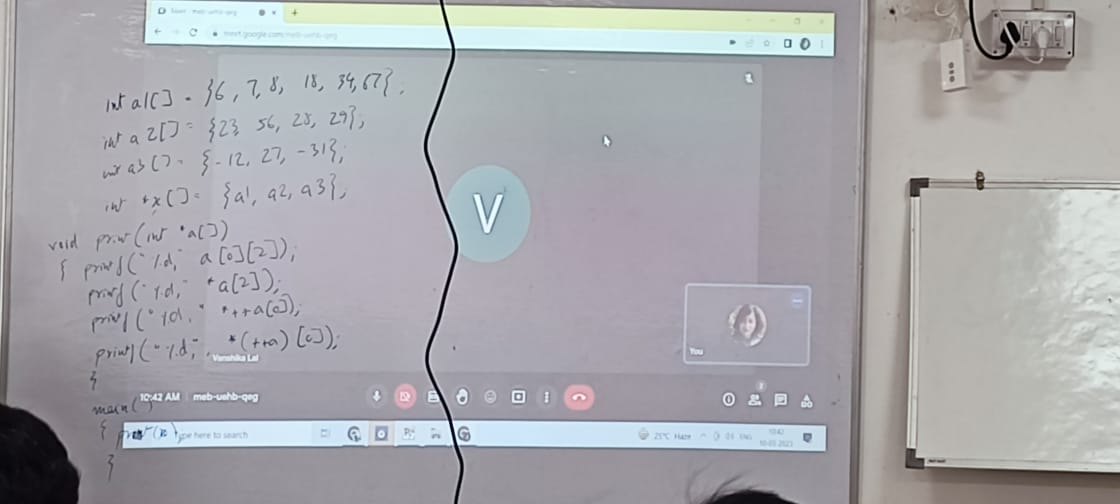 meet.google.com/meb-uehb-qeg
int a1[] = {6, 7, 8, 18, 34, 67};
int a2[] = {23, 56, 28, 29};
int a3[] = {-12, 27, -31};
int *x[] = {a1, a2, a3};
void print(int *a[])
{ printf("%d," a[0][2]);
printf("%d," *a[2]);
printf("%d," *++a[0]);
printf("%d," *(++a)[0]);
}
main()
{ print(x)
}
V
You
Vanshika Lal
10:42 AM meb-uehb-qeg
Type here to search
25°C Haze ENG
10:42
10-05-2023